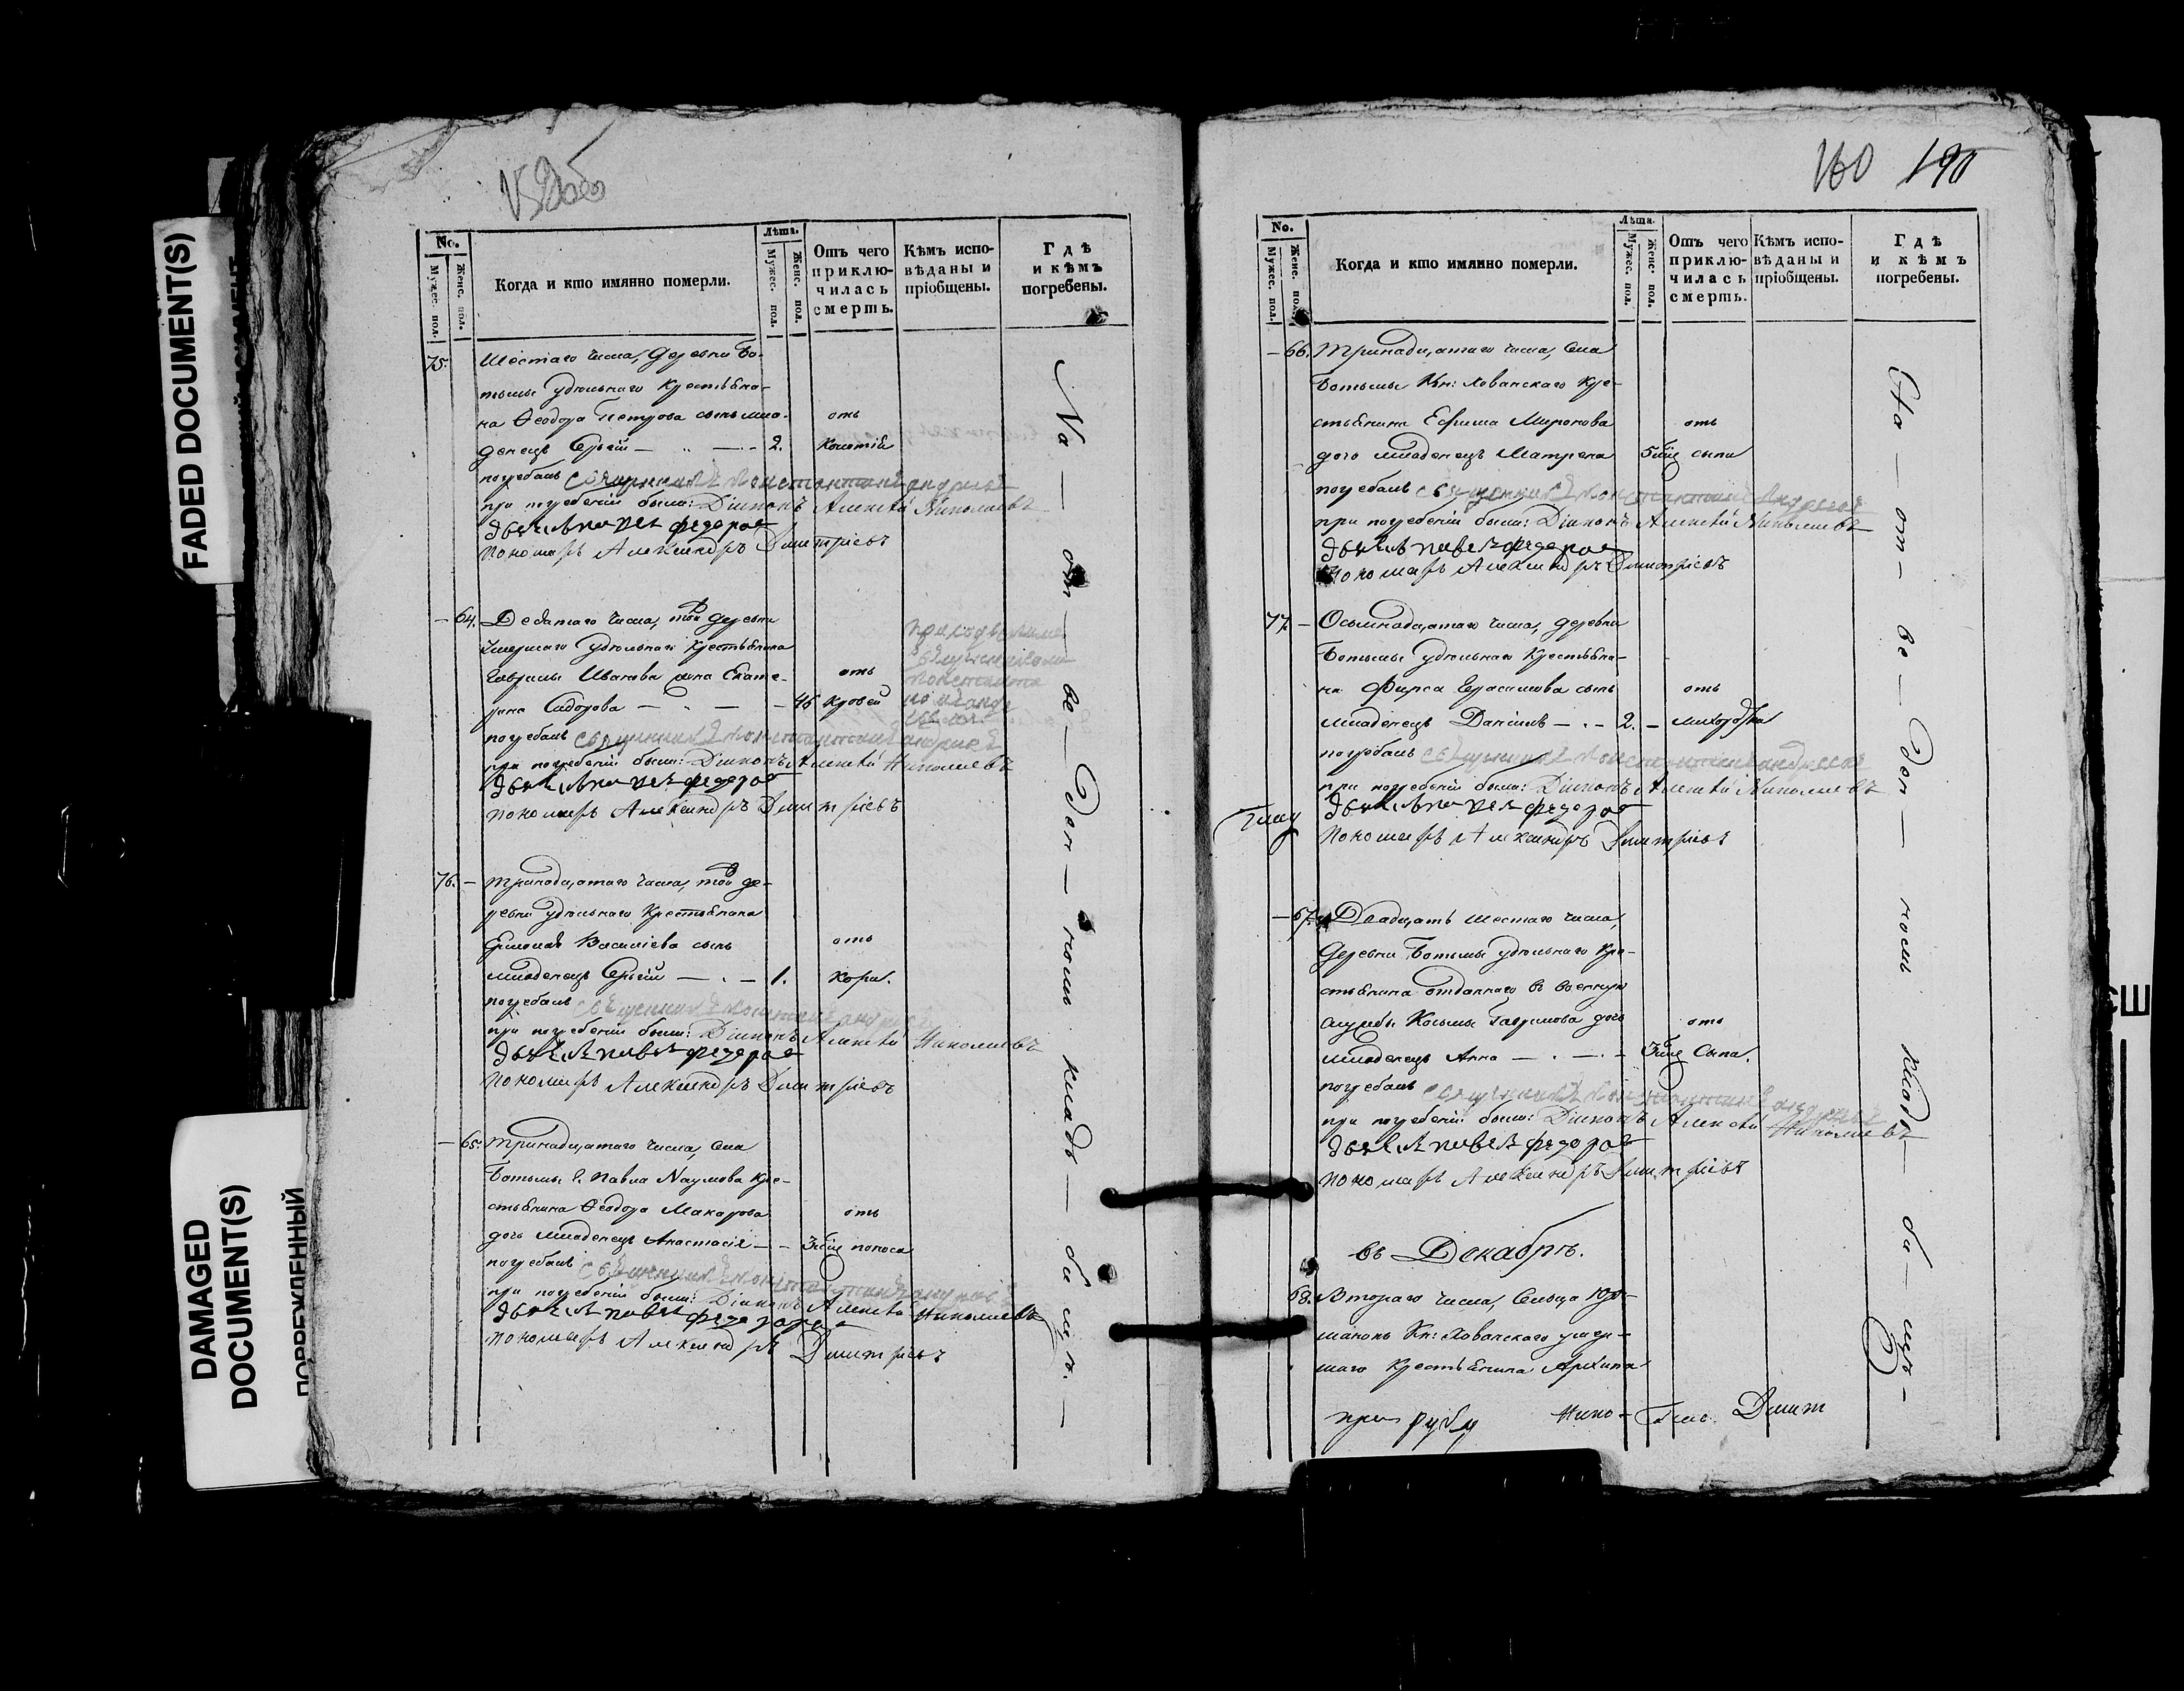 FADED DOCUMENT(S)
DAMAGED
DOCUMENT(S)
ПОВРЕЖДЕННЫЙ
No.
Мужес. пол.
Женс. пол.
Когда и кто имянно померли.
Лѣта.
Мужес. пол.
Женс. пол.
Отъ чего приклю-
чилась смерть.
Кѣмъ испо-
вѣданы и
пріобщены.
Гдѣ
и кѣмъ
погребены.
75. Шестаго числа, деревни Бо-
тьмы удѣльнаго крестьяни-
на Ѳеодора Петрова сынъ мла- отъ
денецъ Сергѣй 2.
погребалъ священникъ Константинъ Андреевъ
при погребеніи были: Діаконъ Алексѣй Николаевъ
дьячекъ Павелъ Федоровъ
пономарь Александръ Дмитріевъ
- 64. Девятаго числа, той деревни
умершаго удѣльнаго крестьянина
Гаврилы Иванова жена Екате- отъ
рина Сидорова - 46 крови
погребалъ священникъ Константинъ Андреевъ
при погребеніи были: Діаконъ Алексѣй Николаевъ
дьячекъ Павелъ Федоровъ
пономарь Александръ Дмитріевъ
76. - Тринадцатаго числа, той де-
ревни удѣльнаго крестьянина
Василіева сынъ отъ
младенецъ Сергѣй 1. кори.
погребалъ священникъ Константинъ Андреевъ
при погребеніи были: Діаконъ Алексѣй Николаевъ
дьячекъ Павелъ Федоровъ
пономарь Александръ Дмитріевъ
- 65. Тринадцатаго числа, села
Ботьмы Г. Павла Наумова кре-
стьянина Ѳеодора Макарова отъ
дочь младенецъ Анастасія поноса
погребалъ священникъ Константинъ Андреевъ
при погребеніи были: Діаконъ Алексѣй Николаевъ
дьячекъ Павелъ Федоровъ
пономарь Александръ Дмитріевъ
На - от - ве - ден - номъ кладъ - би - щѣ. -
160 190
No.
Мужес. пол.
Женс. пол.
Когда и кто имянно померли.
Лѣта.
Мужес. пол.
Женс. пол.
Отъ чего
приклю-
чилась
смерть.
Кѣмъ испо-
вѣданы и
пріобщены.
Гдѣ
и кѣмъ
погребены.
- 66. Тринадцатаго числа, села
Ботьмы Кн: Хованскаго кре-
стьянина Ефима Миронова отъ
дочь младенецъ Матрена сыпи
погребалъ священникъ Константинъ Андреевъ
при погребеніи были: Діаконъ Алексѣй Николаевъ
дьячекъ Павелъ Федоровъ
пономарь Александръ Дмитріевъ
77. - Осьмнадцатаго числа, деревни
Ботьмы удѣльнаго крестьяни-
на Фирса Герасимова сынъ отъ
младенецъ Даніилъ 2. - лихорадки
погребалъ священникъ Константинъ Андреевъ
при погребеніи были: Діаконъ Алексѣй Николаевъ
дьячекъ Павелъ Федоровъ
пономарь Александръ Дмитріевъ
- 67. Двадцать шестаго числа,
деревни Ботьмы удѣльнаго кре-
стьянина отданнаго въ военную
службу Косьмы Гаврилова дочь отъ
младенецъ Анна сыпи.
погребалъ священникъ Константинъ Андреевъ
при погребеніи были: Діаконъ Алексѣй Николаевъ
дьячекъ Павелъ Федоровъ
пономарь Александръ Дмитріевъ
Въ Декабрѣ.
68. Втораго числа, сельца
Кн: Хованскаго умер-
шаго крестьянина Архипа
На - от - ве - ден - номъ кладъ - би - щѣ -